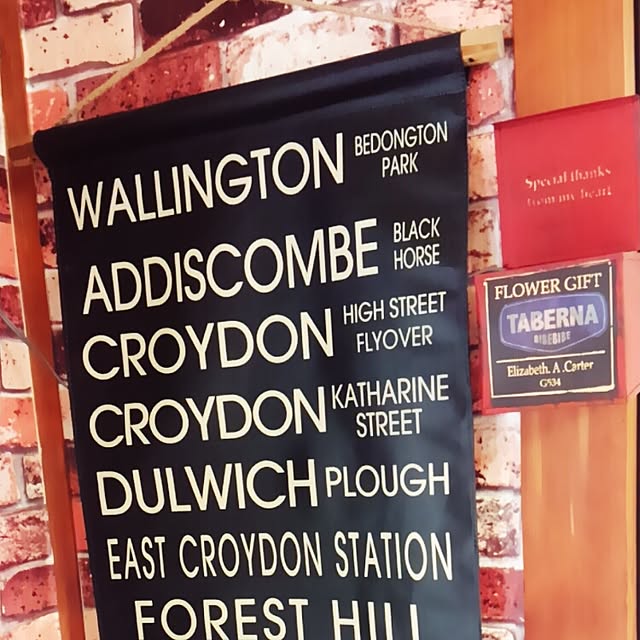 WALLINGTON BEDONGTON
PARK
ADDISCOMBE BLACK
HORSE
CROYDON HIGH STREET
FLYOVER
CROYDON KATHARINE
STREET
DULWICH PLOUGH
EAST CROYDON STATION
FOREST HILL
Special thanks
from my heart
FLOWER GIFT
TABERNA
Elizabeth. A. Carter